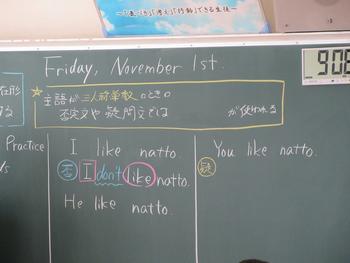 ～「気づき」「考え」「行動」できる生徒～
Friday, November 1st.
908
☆主語が三人称単数のときの
否定文や疑問文では　　　が使われる
Practice
I like natto.
否 I don't like natto.
He like natto.
You like natto.
疑